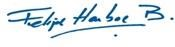 Felipe Harboe B.